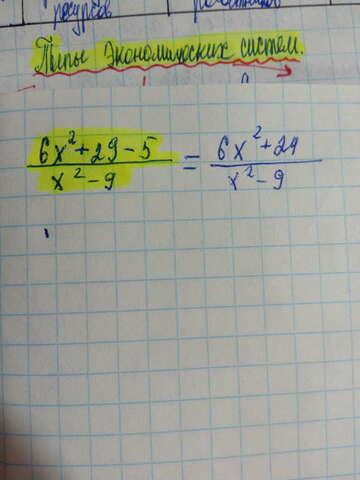 ресурсов
Типы Экономических систем.
6x² + 29 - 5 / x² - 9 = 6x² + 24 / x² - 9